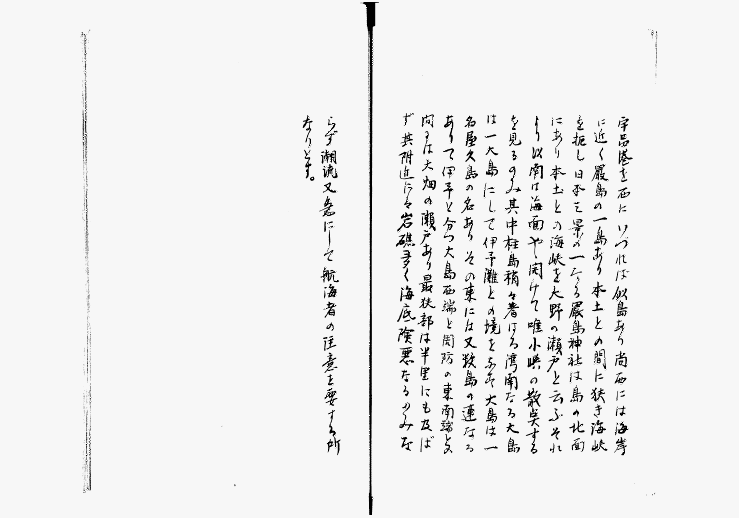 宇品港を西にいづれば似島あり尚西には海岸
に近く厳島の一島あり本土との間に狭き海峡
を扼し日本三景の一なる厳島神社は島の北面
にあり本土との海峡を大野の瀬戸と云ふそれ
より以南は海面やゝ開けて唯小嶼の散点する
を見るのみ其中柱島稍々著はる湾南なる大島
は一大島にして伊予灘との境をなす大島は一
名屋久島の名ありその東には又数島の連なる
ありて伊予と分つ大島西端と周防の東南端との
間には大畑の瀬戸あり最狭部は半里にも及ば
ず其附近には岩礁多く海底険悪なるのみな
らず潮流又急にして航海者の注意を要する所
なりとす。